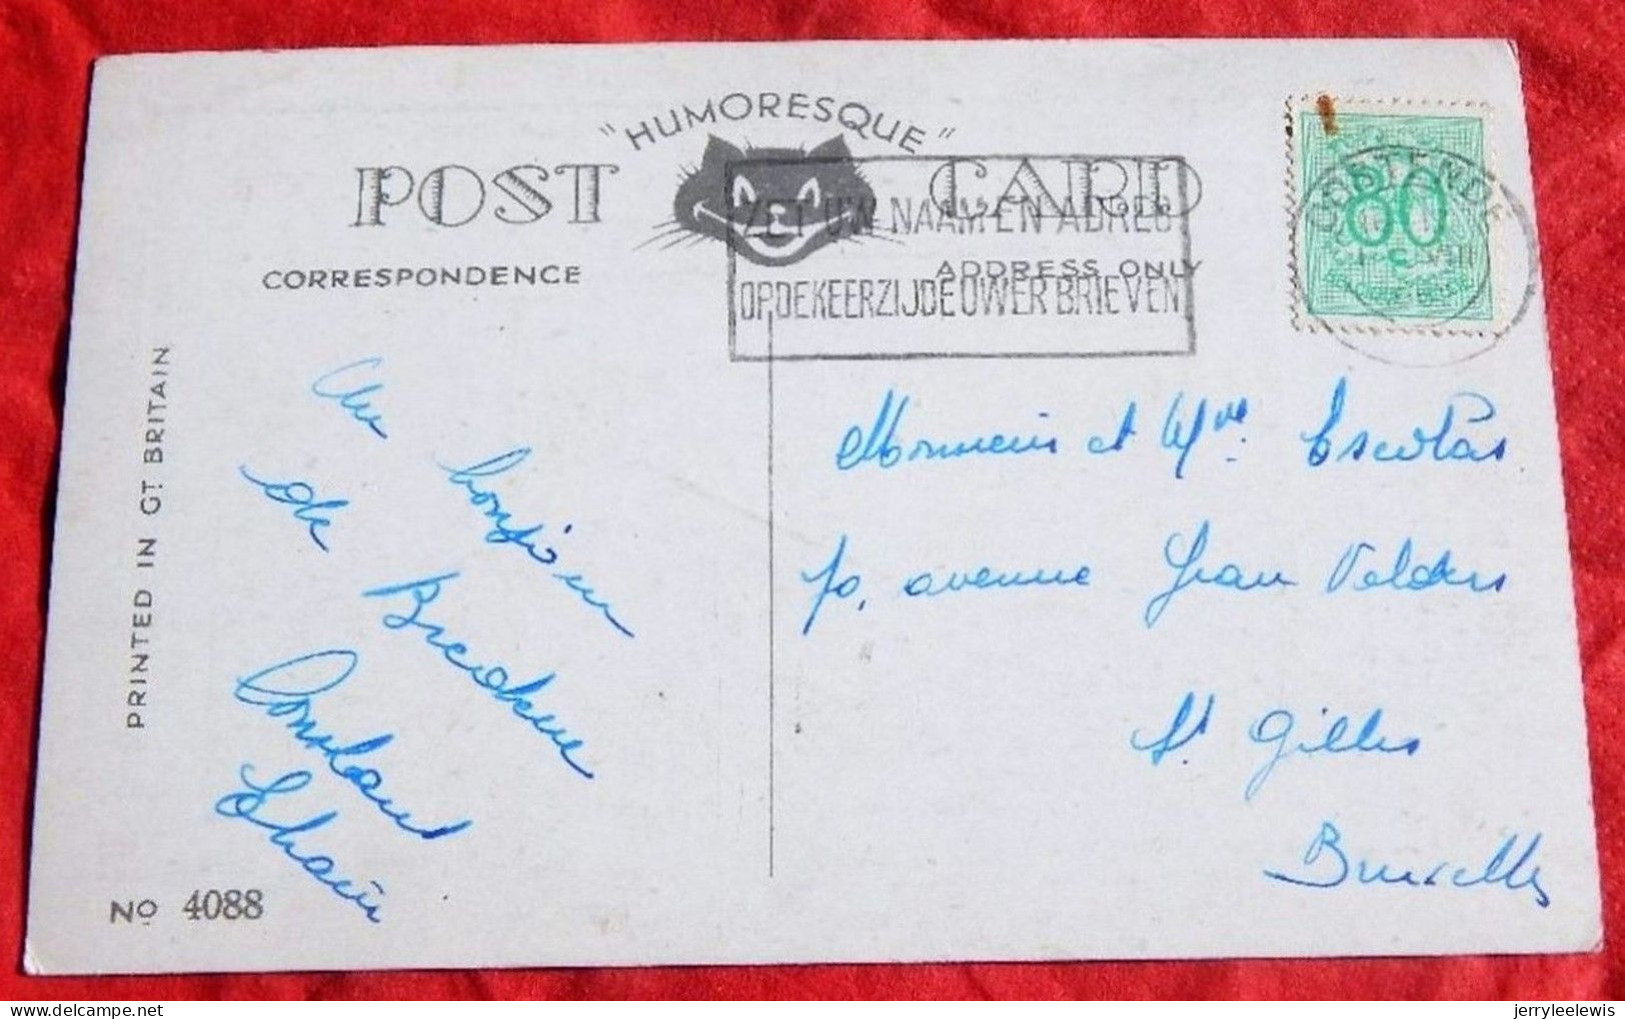 "HUMORESQUE"
POST CARD
CORRESPONDENCE
ADDRESS ONLY
ZET UW NAAM EN ADRES
OP DE KEERZIJDE UWER BRIEVEN
OOSTENDE
80 c
BELGIQUE-BELGIE
Un
bonjour
de
Bredene
Monsieur et Mme
70, avenue Jean Volders
St Gilles
Bruxelles
PRINTED IN GT BRITAIN
No 4088
jerryleelewis